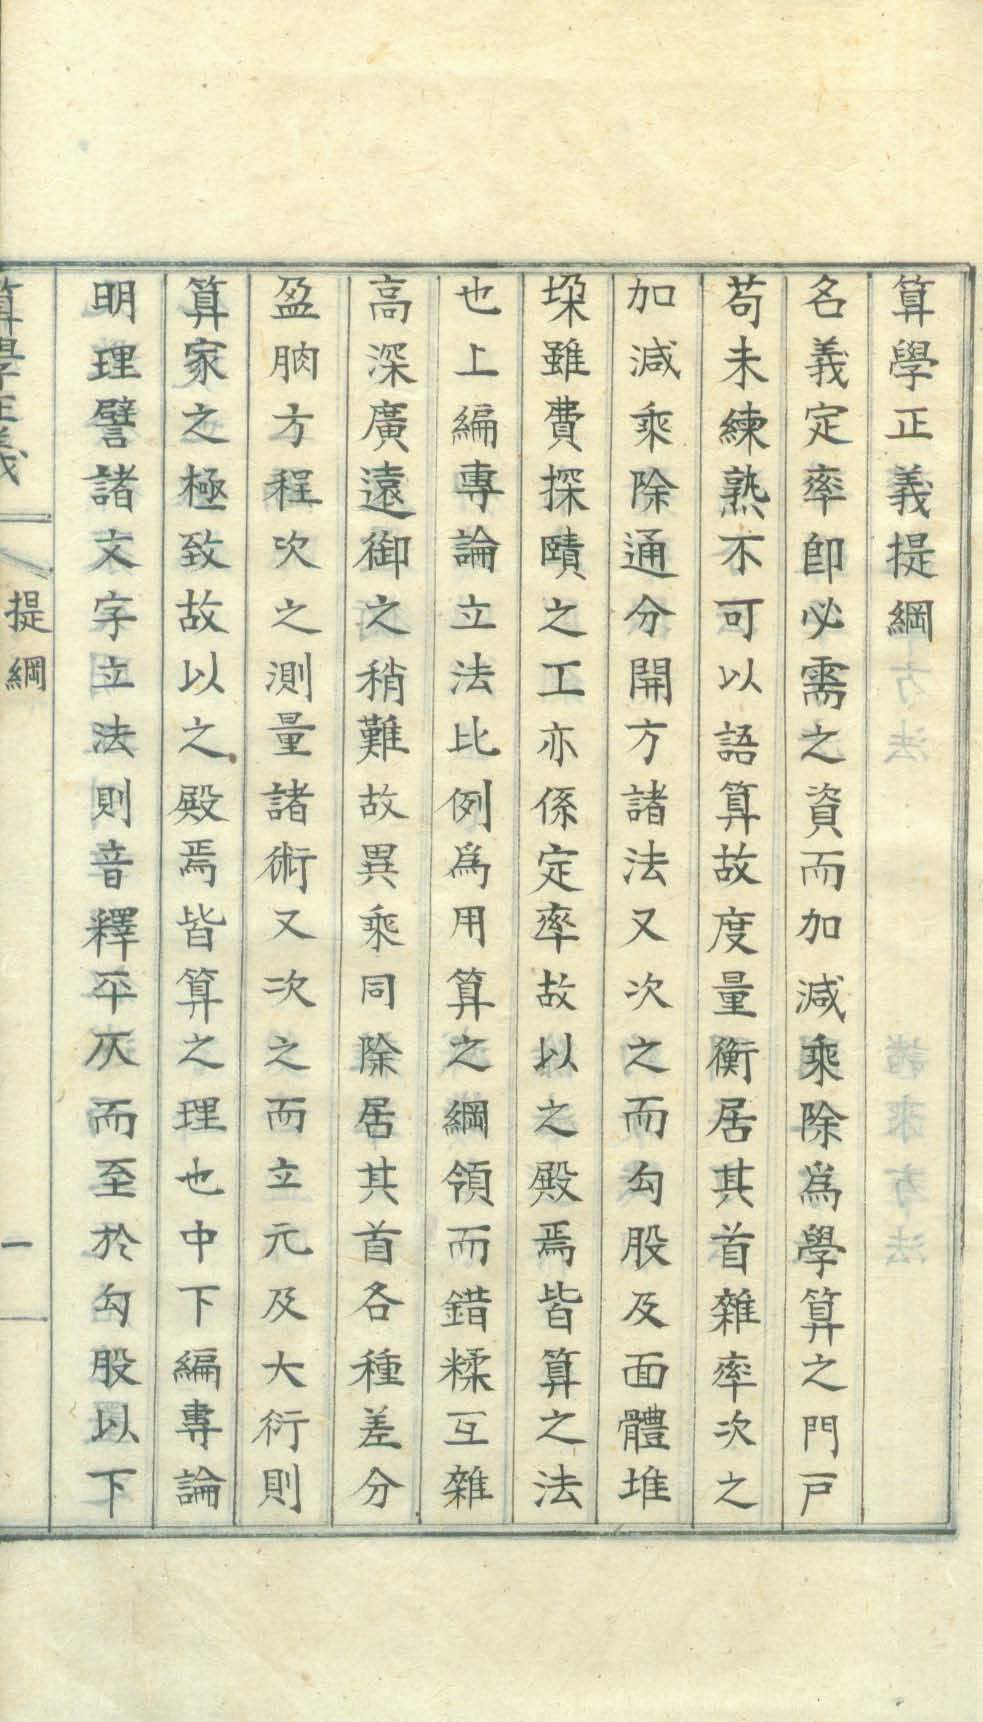 算學正義提綱
名義定率卽必需之資而加減乘除爲學算之門戸
苟未練熟不可以語算故度量衡居其首雜率次之
加減乘除通分開方諸法又次之而勾股及面體堆
垛雖費探賾之工亦係定率故以之殿焉皆算之法
也上編專論立法比例爲用算之綱領而錯糅互雜
高深廣遠御之稍難故異乘同除居其首各種差分
盈朒方程次之測量諸術又次之而立元及大衍則
算家之極致故以之殿焉皆算之理也中下編專論
明理譬諸文字立法則音釋平仄而至於勾股以下
算學正義 提綱 一